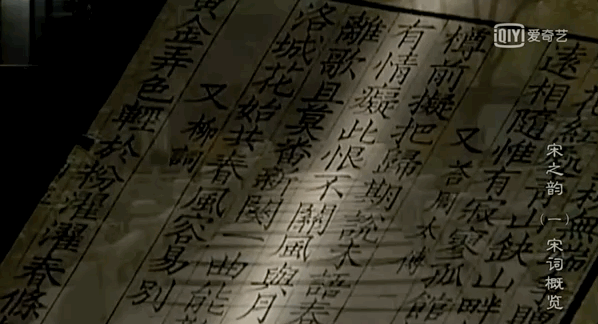 遠相隨惟有寂寥孤館
又答周太傅
樽前擬把歸期說未語春
有情癡此恨不關風與月
離歌且莫翻新闋一曲能
洛城花始共春風容易別
又柳詞
黃金弄色輕於粉濯濯春條
iQIYI 爱奇艺
宋之韵（一）宋词概览